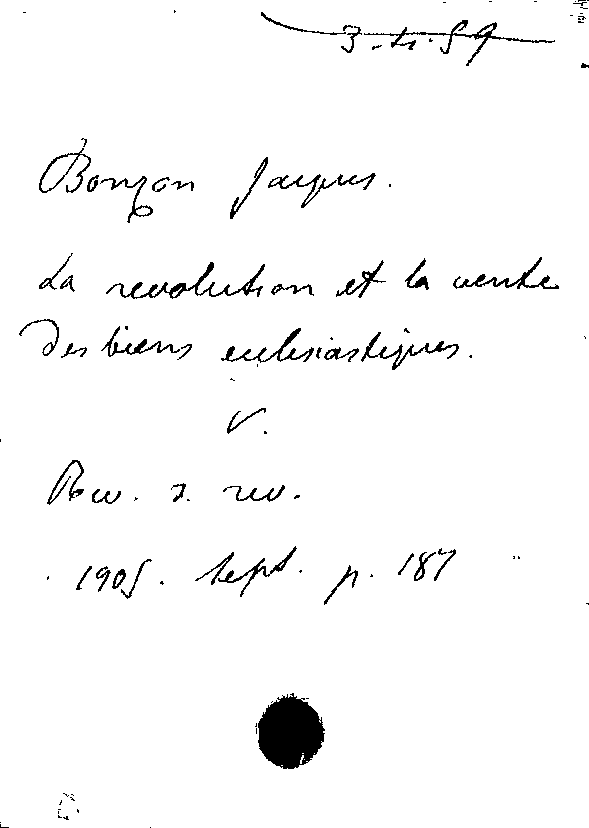 Bonzon Jacques.
La revolution et la vente
des biens eclesiastiques.
V.
Rev. d. rev.
1905. sept. p. 187